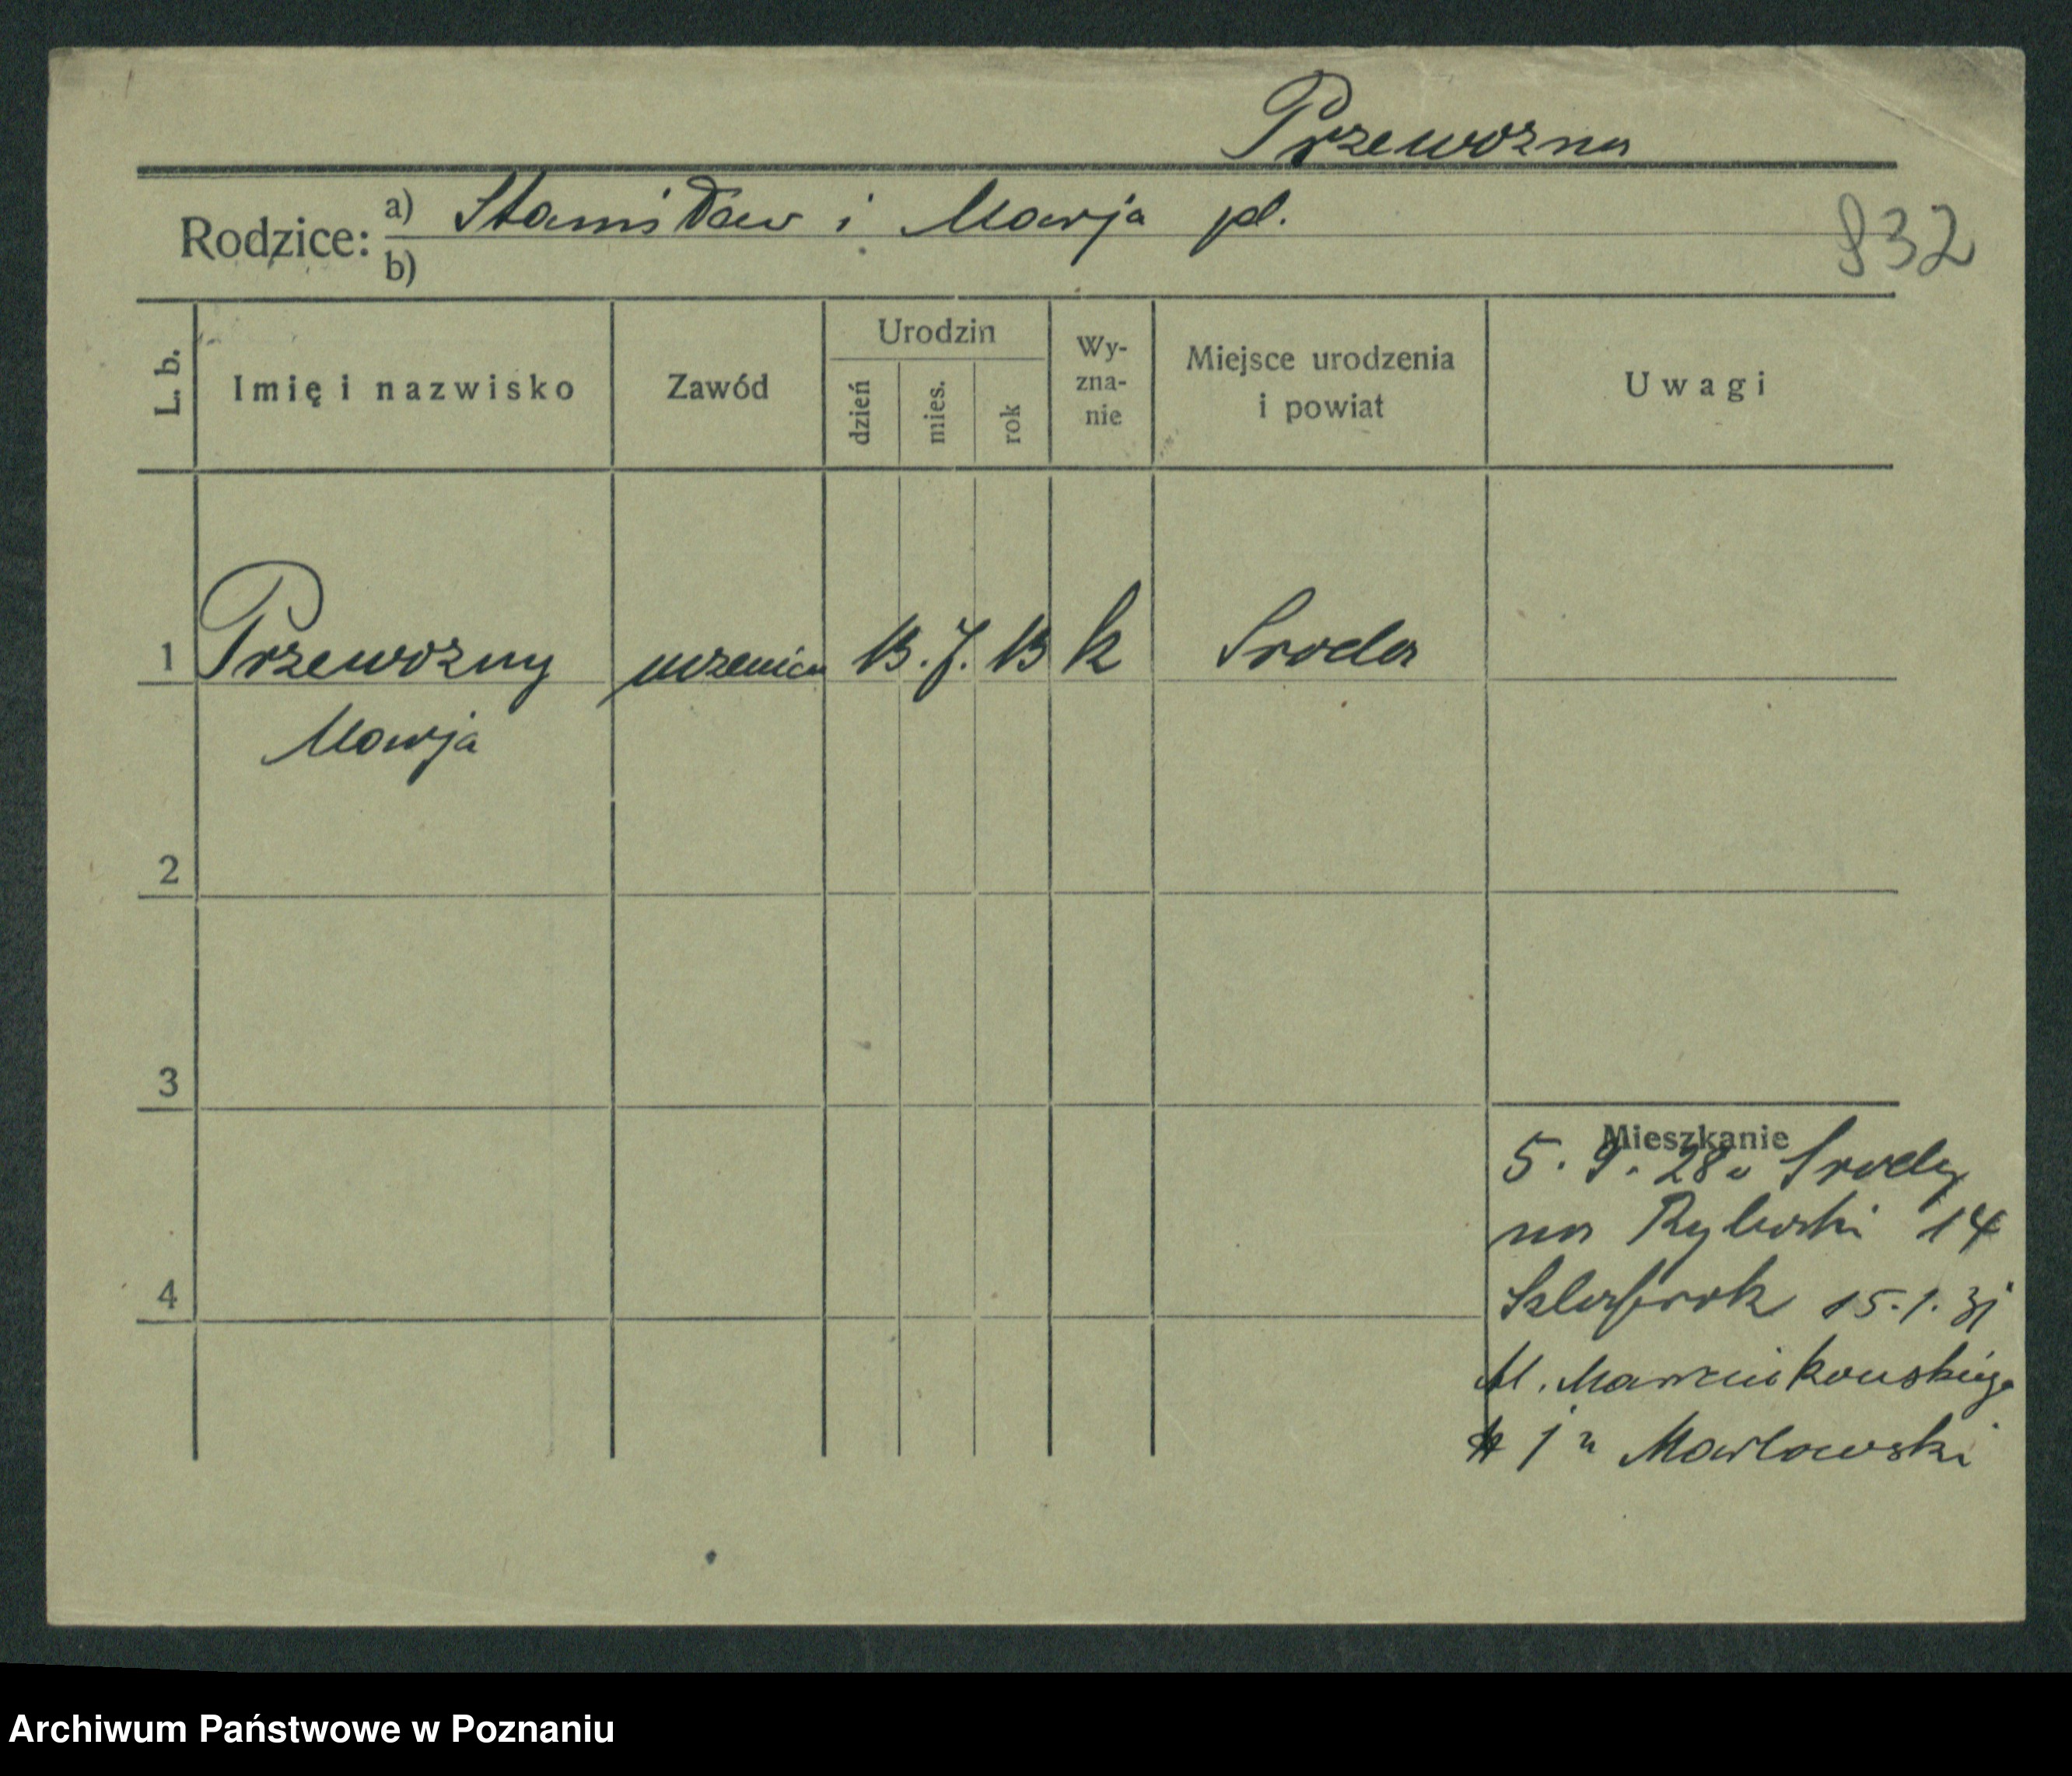 Przewozna
Rodzice: a) Stanisław i Marja pl.
b)
832
L. b.
Imię i nazwisko
Zawód
Urodzin
dzień
mies.
rok
Wy-
zna-
nie
Miejsce urodzenia
i powiat
Uwagi
1 Przewozny uczenica 13. 7. 13 k Sroda
Marja
2
3
4
Mieszkanie
5. 9. 28 Srody
na Rybaki 14
Szlafrok 15. 1. 31
Al. Marcinkowskiego
Marlowski
Archiwum Państwowe w Poznaniu